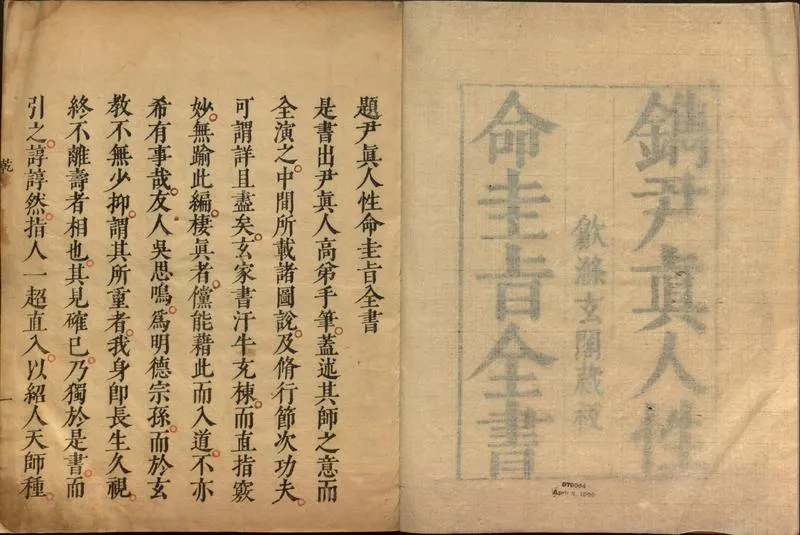 鐫尹眞人性
歙滌玄閣藏板
命圭㫖全書
題尹眞人性命圭㫖全書
是書出尹眞人高弟手筆。蓋述其師之意而
全演之。中間所載諸圖說。及脩行節次功夫。
可謂詳且盡矣。玄家書汗牛充棟。而直指竅
妙。無踰此編。棲眞者。儻能藉此而入道。不亦
希有事哉。友人吳思鳴。爲明德宗孫。而於玄
教不無少抑。謂其所重者。我身卽長生久視。
終不離壽者相也。其見確已。乃獨於是書。而
引之。諄諄然。指人一超直入。以紹人天師種。
乾
一